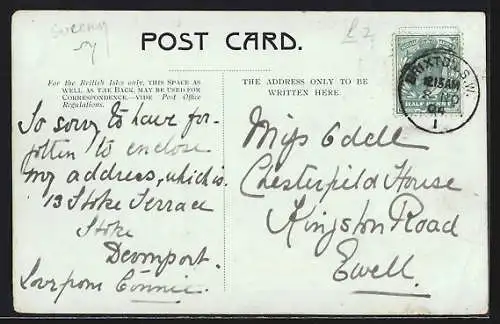 sweeny
sy
£2
POST CARD.
For the British Isles only, THIS SPACE AS
WELL AS THE BACK, MAY BE USED FOR
CORRESPONDENCE—VIDE Post Office
Regulations.
THE ADDRESS ONLY TO BE
WRITTEN HERE.
BRIXTON S.W.
12.15AM
HALF PENNY
1
So sorry to have for-
gotten to enclose
my address, which is.
13 Stoke Terrace
Stoke
Devonport.
Love from Connie.
Miss Odell
Chesterfield House
Kingston Road
Ewell.